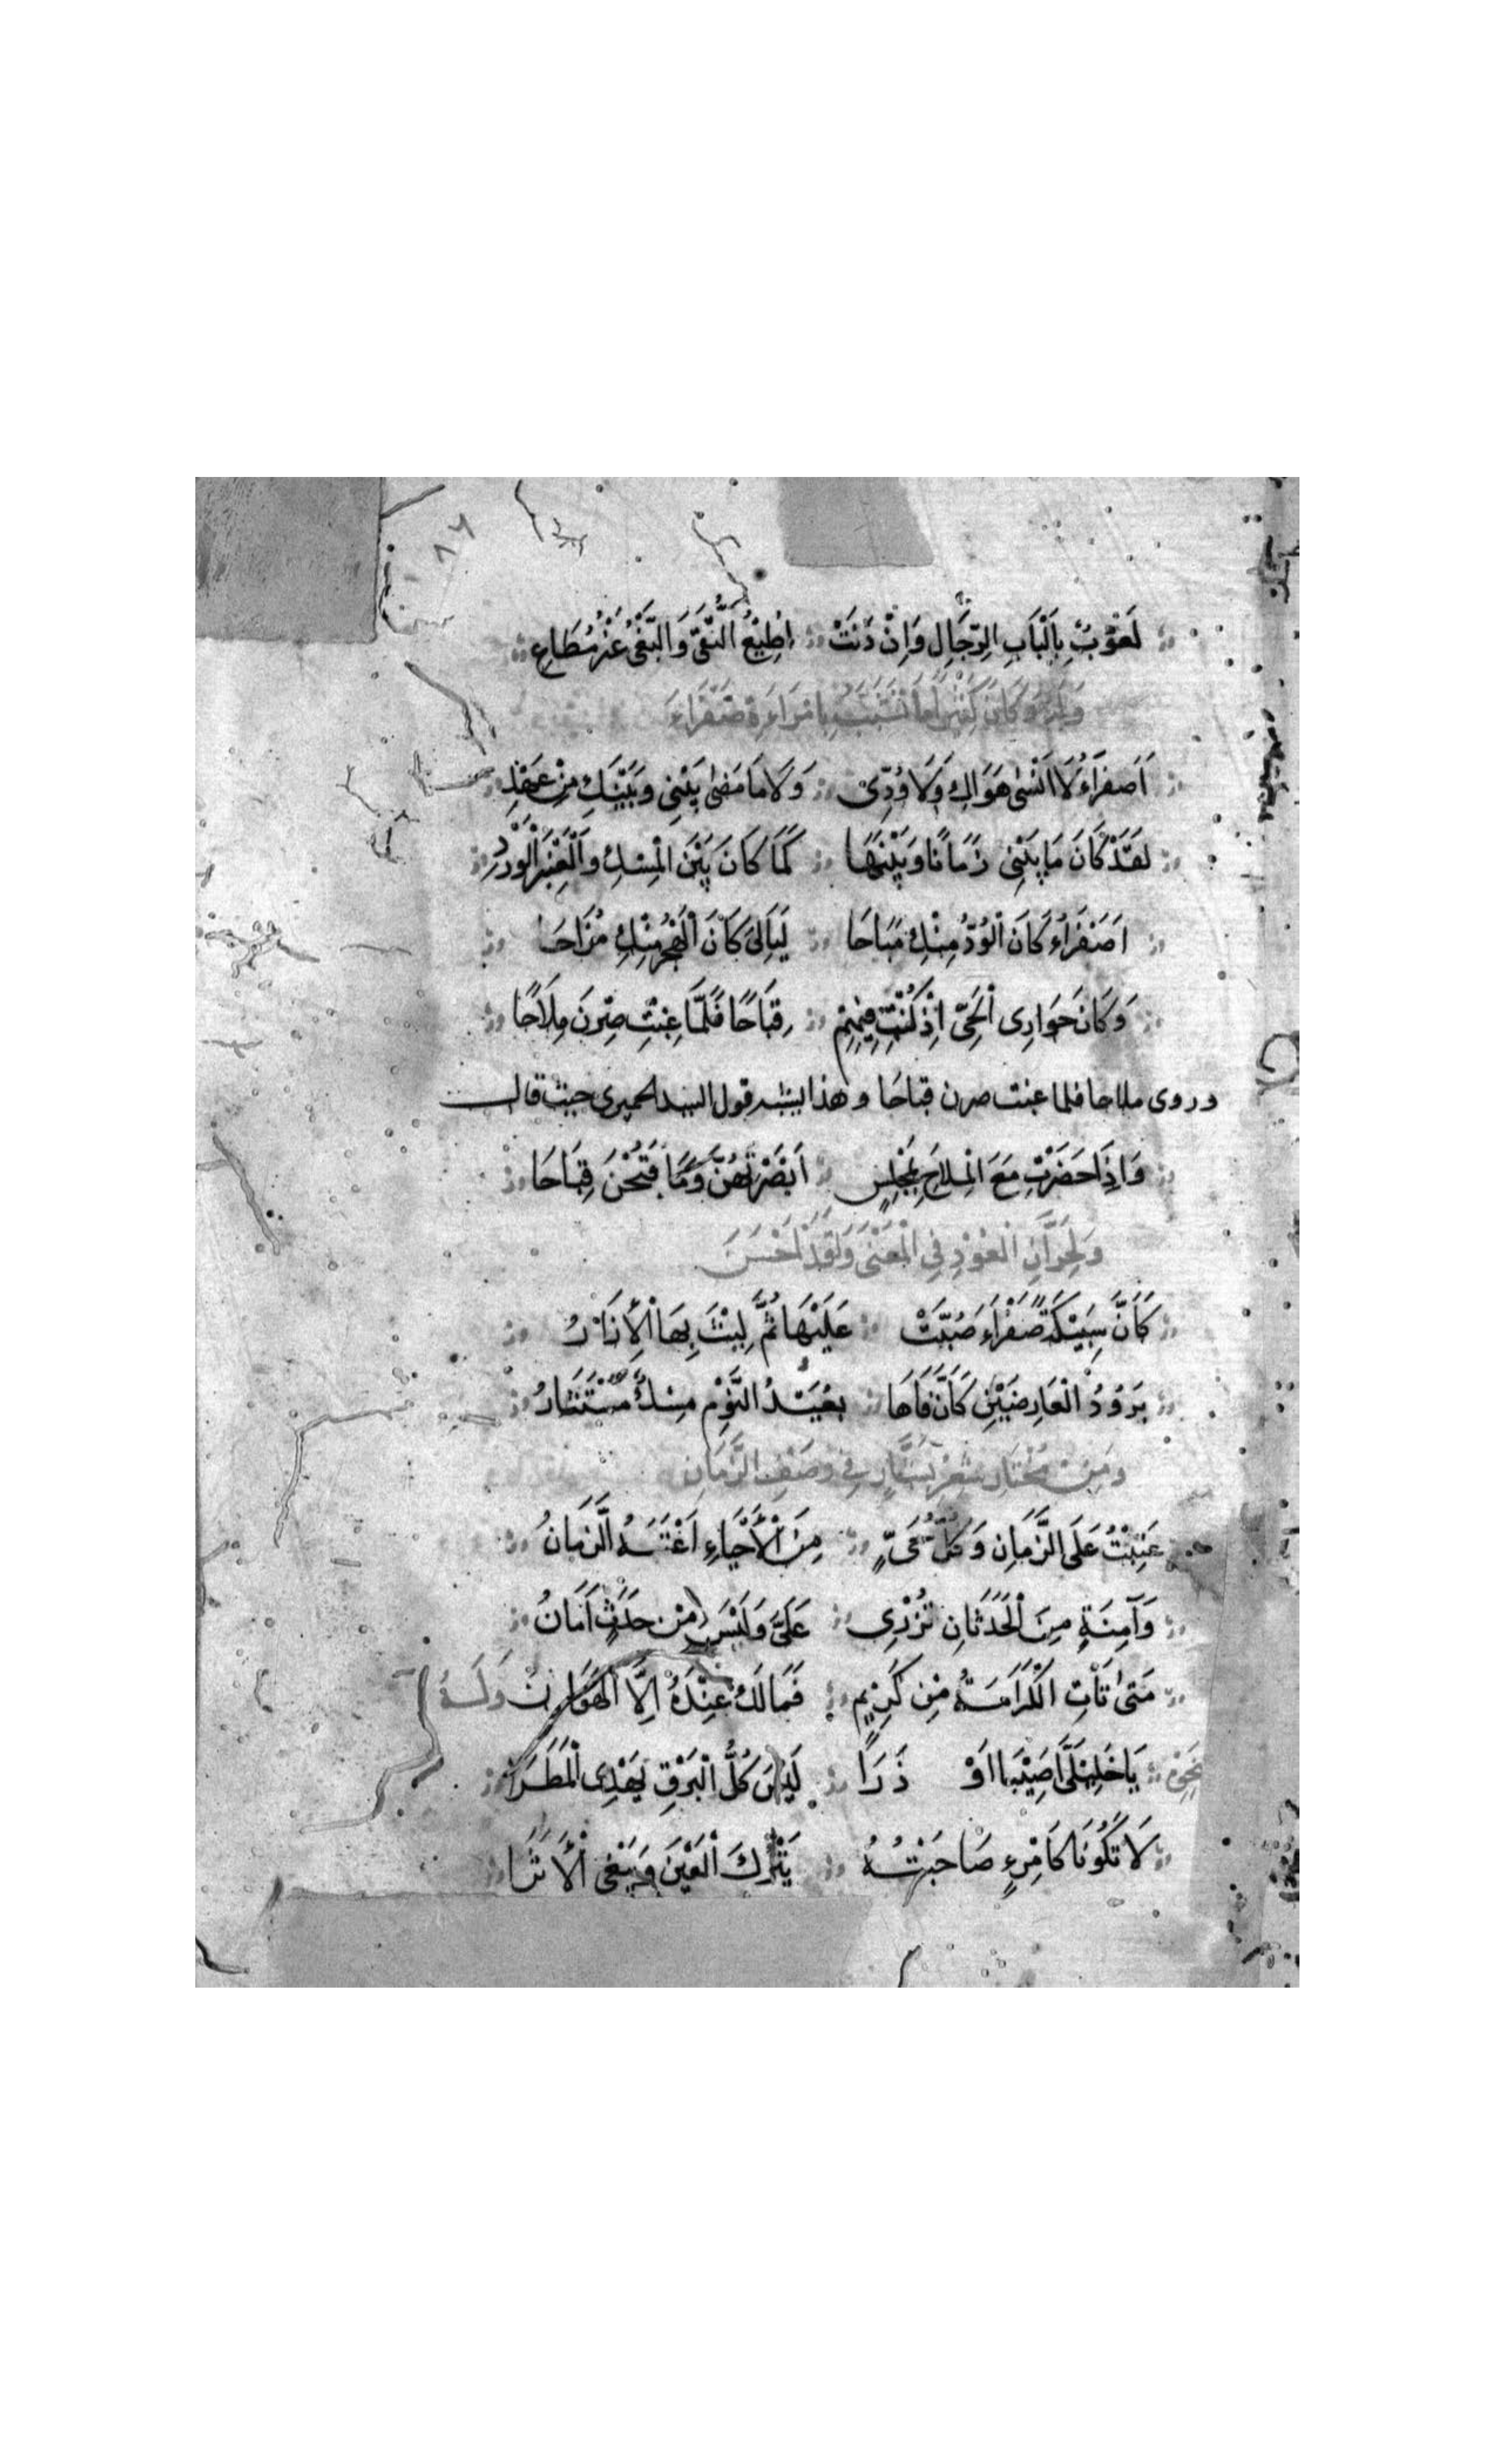 ١٨٦
لَعُوبٌ بِأَلْبَابِ الرِّجَالِ وَإِنْ دَنَتْ أُطِيْعُ التُّقَى وَالْبَغْىُ غَيْرُ مُطَاعِ
وَلَهُ وَكَانَ كَثِيْرًا مَا يُشَبِّبُ بِامْرَاءَةٍ صَفْرَاءَ
اَصَفْرَاءُ لَا اَنْسٰى هَوَاكِ وَلَا وُدِّىْ وَلَا مَا مَضٰى بَيْنِىْ وَبَيْنَكِ مِنْ عَهْدِ
لَقَدْ كَانَ مَا بَيْنِىْ زَمَانًا وَبَيْنَهَا كَمَا كَانَ بَيْنَ الْمِسْكِ وَالْعَنْبَرِ الْوَرْدِ
اَصَفْرَاءُ كَانَ الْوُدُّ مِنْكِ مُبَاحَا لَيَالِىَ كَانَ الْهَجْرُ مِنْكِ مُزَاحَا
وَكَانَ جَوَارِى الْحَىِّ اِذْ كُنْتِ فِيْهِمْ قِبَاحًا فَلَمَّا غِبْتِ صِرْنَ مِلَاحًا
وروى ملاحا فلما غبت صرن قباحَا وهذا يشبه قول السيد الحميرى حيث قال
وَاِذَا حَضَرْتِ مَعَ الْمِلَاحِ بِمَجْلِسٍ اَبْصَرْتَهُنَّ وَمَا قَبُحْنَ قِبَاحَا
وَلِجِرَانِ الْعَوْدِ فِي الْمَعْنٰى وَلَقَدْ اَحْسَنَ
كَأَنَّ سَبِيْكَةً صَفْرَاءَ صُبَّتْ عَلَيْهَا ثُمَّ لِيْثَ بِهَا الْإِزَارُ
بَرُوْدُ الْعَارِضَيْنِ كَأَنَّ فَاهَا بُعَيْدَ النَّوْمِ مِسْكٌ مُسْتَثَارُ
وَمِنْ مُخْتَارِ شِعْرِ بَشَّارٍ فِى وَصْفِ الزَّمَانِ
عَتِبْتُ عَلَى الزَّمَانِ وَكُلُّ حَىٍّ مِنَ الْأَحْيَاءِ اَعْتَبَهُ الزَّمَانُ
وَآمِنَةٍ مِنَ الْحَدَثَانِ تُزْرِى عَلَىَّ وَلَيْسَ مِنْ حَدَثٍ اَمَانُ
مَتىٰ تَأْتِ الْكَرَامَةُ مِنْ كَرِيْمٍ فَمَالَكَ عِنْدَهُ اِلَّا الْهَوَانُ وَلَهُ
يَا خَلِيْلَىَّ اَصِيْبَا اَوْ ذَرَا لَيْسَ كُلُّ الْبَرْقِ يَهْدِى الْمَطَرَا
لَا تَكُوْنَا كَامْرِءٍ صَاحَبْتُهُ يَتْرُكَ الْعَيْنَ وَيَبْغِى الْأَثَرَا